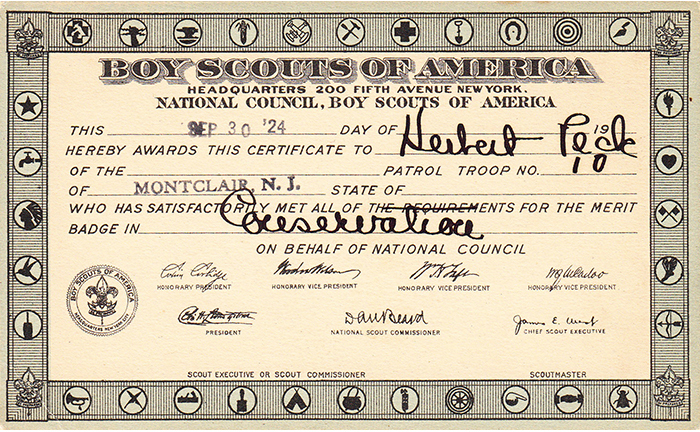 BOY SCOUTS OF AMERICA
HEADQUARTERS 200 FIFTH AVENUE NEW YORK.
NATIONAL COUNCIL, BOY SCOUTS OF AMERICA
THIS SEP 30 '24 DAY OF 19
HEREBY AWARDS THIS CERTIFICATE TO Herbert Peck
OF THE PATROL TROOP NO. 10
OF MONTCLAIR, N. J. STATE OF
WHO HAS SATISFACTORILY MET ALL OF THE REQUIREMENTS FOR THE MERIT
BADGE IN Conservation
ON BEHALF OF NATIONAL COUNCIL
BOY SCOUTS OF AMERICA
HEADQUARTERS NEW YORK CITY
Calvin Coolidge Woodrow Wilson Wm H Taft W G McAdoo
HONORARY PRESIDENT HONORARY VICE PRESIDENT HONORARY VICE PRESIDENT HONORARY VICE PRESIDENT
Dan Beard James E. West
PRESIDENT NATIONAL SCOUT COMMISSIONER CHIEF SCOUT EXECUTIVE
SCOUT EXECUTIVE OR SCOUT COMMISSIONER SCOUTMASTER